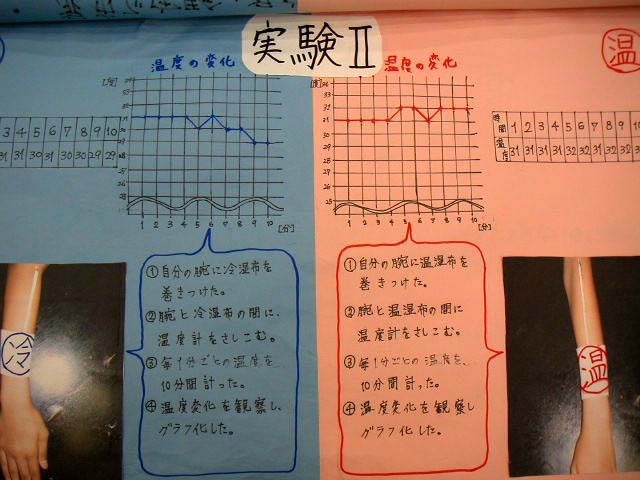 実験Ⅱ
温度の変化
[度]
33
32
31
30
29
28
25
1 2 3 4 5 6 7 8 9 10
[分]
3 4 5 6 7 8 9 10
31 31 30 31 30 30 29 29
①自分の腕に冷湿布を
巻きつけた。
②腕と冷湿布の間に、
温度計をさしこむ。
③毎1分ごとの温度を、
10分間計った。
④温度変化を観察し、
グラフ化した。
冷
温度の変化
温
[度]
33
32
31
30
29
28
25
1 2 3 4 5 6 7 8 9 10
[分]
時間 1 2 3 4 5 6 7 8 9 10
温度 31 31 31 31 32 32 31 32 32 32
①自分の腕に温湿布を
巻きつけた。
②腕と温湿布の間に
温度計をさしこむ。
③毎1分ごとの温度を、
10分間計った。
④温度変化を観察し
グラフ化した。
温